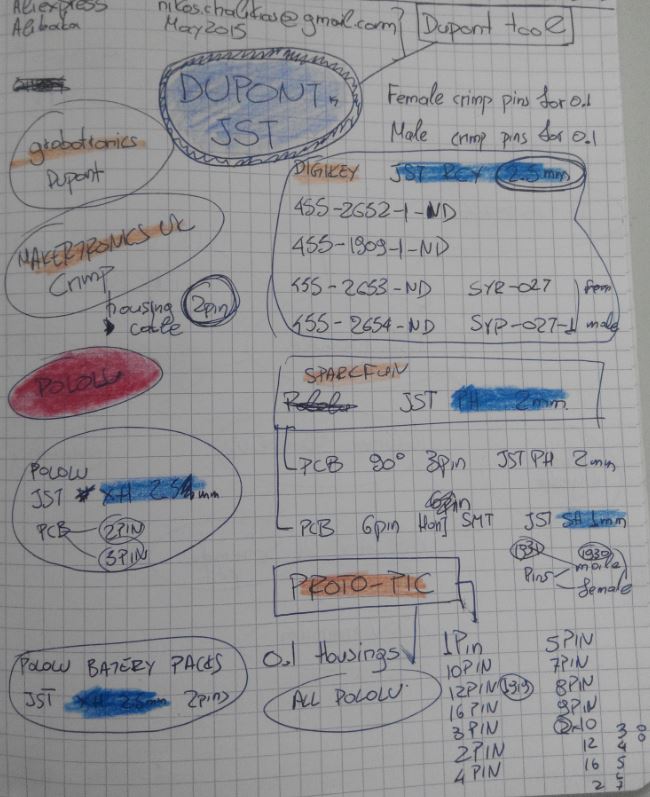 Aliexpress
Alibaba
nikos.chalikias@gmail.com
May 2015
Dupont tool
DUPONT
JST
Female crimp pins for 0.1
Male crimp pins for 0.1
grobotronics
Dupont
DIGIKEY JST RCY 2.5mm
455-2652-1-ND
455-1909-1-ND
455-2653-ND SYR-02T fem
455-2654-ND SYP-02T-1 male
MAKERTRONICS UK
Crimp
housing 2pin
cable
POLOLU
SPARKFUN
Pololu JST PH 2mm
PCB 90° 3pin JST PH 2mm
6pin
PCB 6pin Horj SMT JST SH 1mm
POLOLU
JST XH 2.54mm
PCB 2PIN
3PIN
1931 1930
Pins male
female
PROTO-PIC
0.1 Housings
ALL POLOLU
POLOLU BATERY PACKS
JST XH 2.5mm 2pins
1Pin
10PIN
12PIN 1919
16PIN
3PIN
2PIN
4PIN
5PIN
7PIN
8PIN
9PIN
2x10
12
16
2
3
4
5
6
7